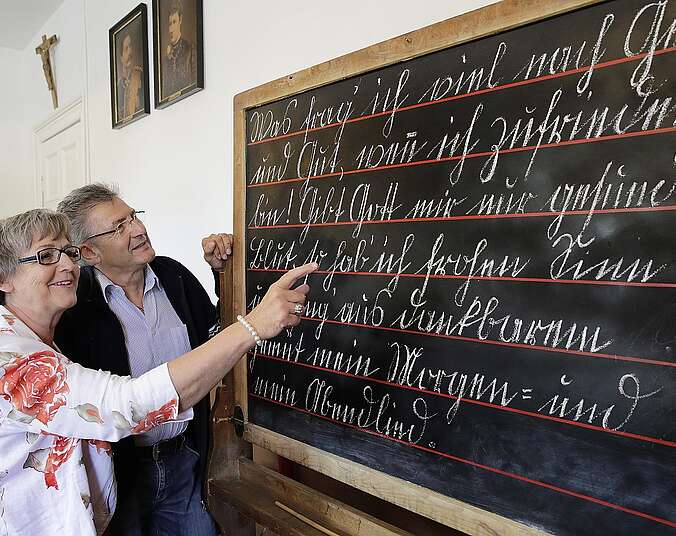 Was frag' ich viel nach Ge
und Gut, wen̄ ich zufrieden
bin! Gibt Gott mir nur gesund
Blut, so hab' ich frohen Sinn
aus dankbarem
mein Morgen= und
mein Abendlied.